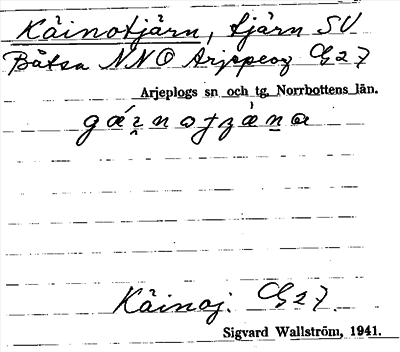 Käinotjärn, tjärn SV
Båtsa NNO Arjeplog G27
Arjeplogs sn och tg, Norrbottens län.
Käinoj. G27.
Sigvard Wallström, 1941.